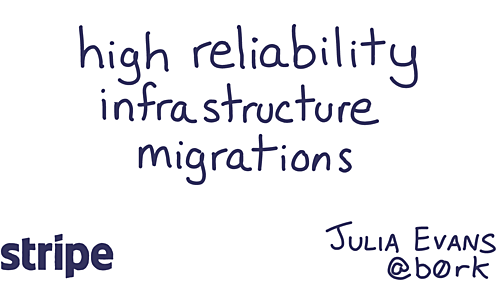 high reliability
infrastructure
migrations
stripe
JULIA EVANS
@b0rk